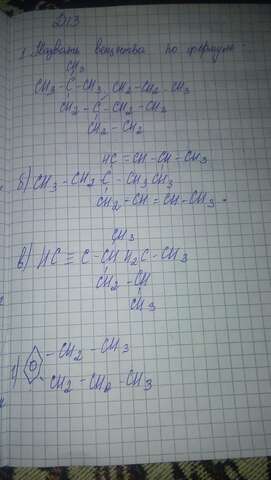 ДПЗ
1 Назвать вещества по формуле.
CH3
CH3 - C - CH3 CH2 - CH2 - CH3
CH2 - C - CH2 - CH3
CH2 - CH2
HC = CH - CH - CH3
б) CH3 - CH2 C - CH3 CH3
CH2 - CH = CH - CH3 -
CH3
в) HC ≡ C - CH H2C - CH3
CH2 - CH
CH3
г) - CH2 - CH3
CH2 - CH2 - CH3